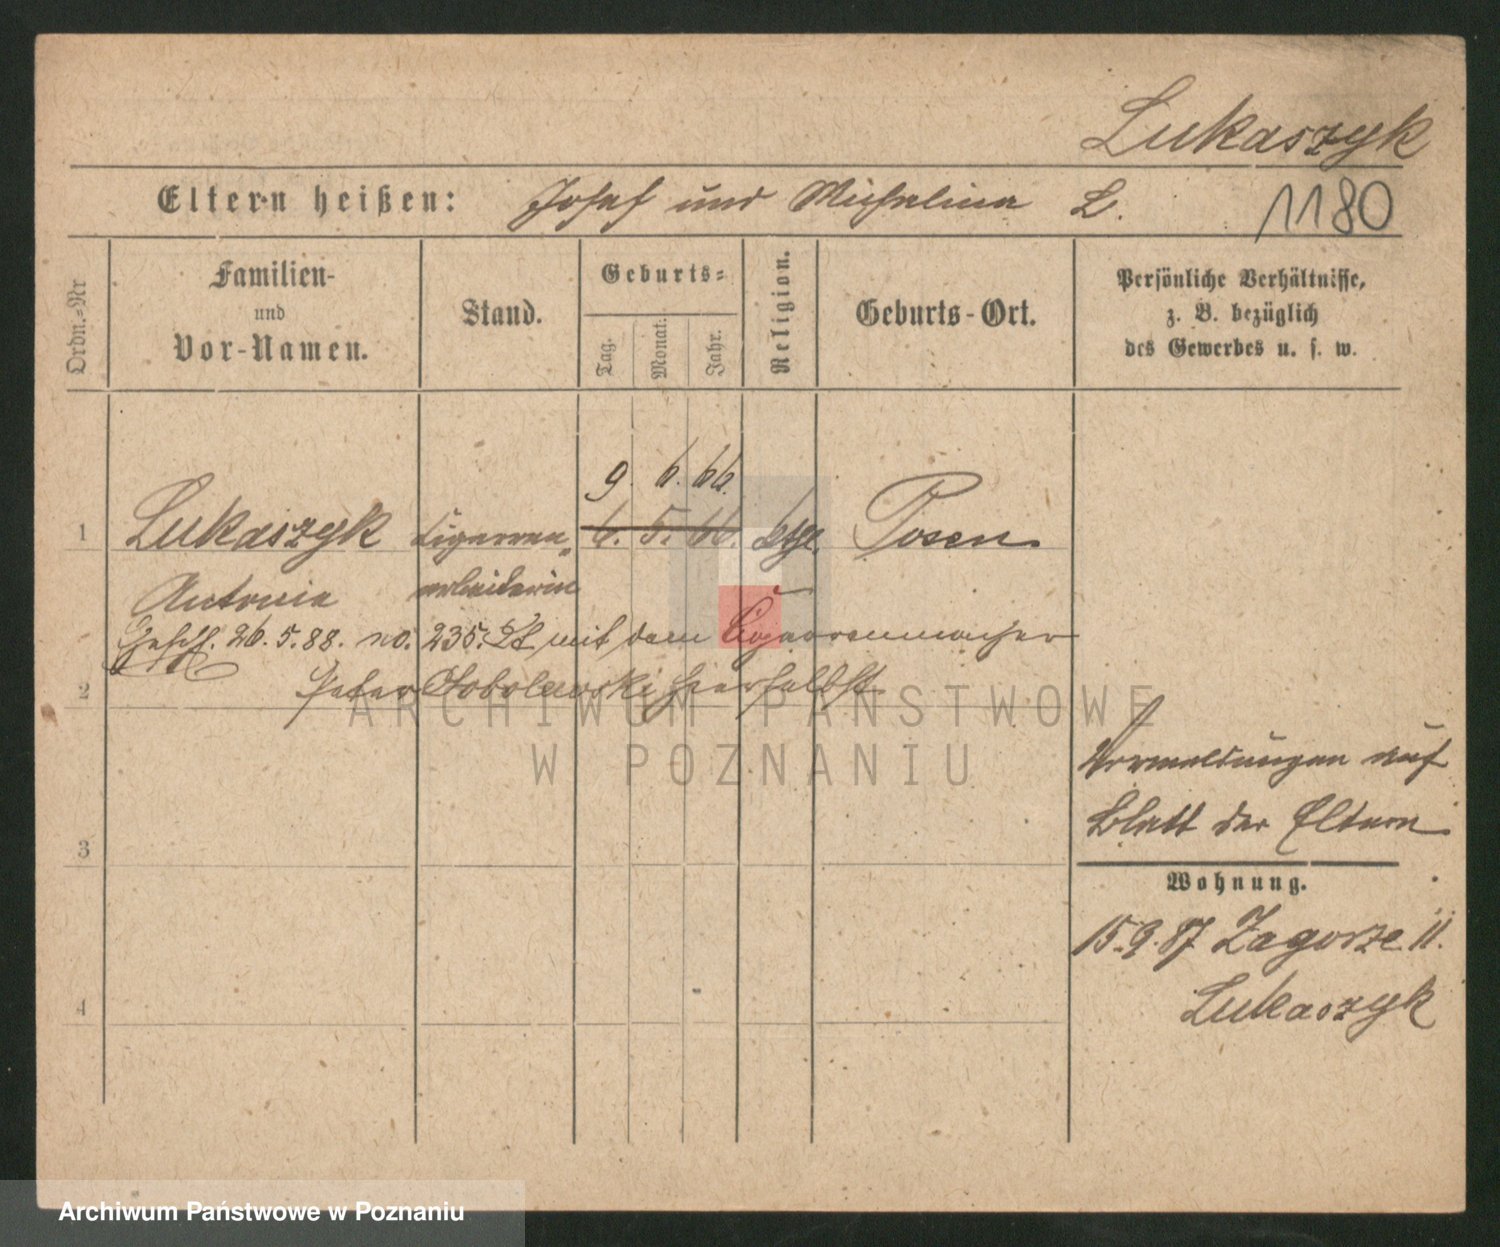 Lukaszyk
Eltern heißen: Josef und Michalina L.
1180
Ordn.=Nr
Familien-
und
Vor-Namen.
Stand.
Geburts=
Tag.
Monat.
Jahr.
Religion.
Geburts-Ort.
Persönliche Verhältnisse,
z. B. bezüglich
des Gewerbes u. s. w.
9. 6. 66.
1 Lukaszyk Cigarren= 6. 5. 66. ktl. Posen
Antonie arbeiterin
Gesch. 26. 5. 88. no. 235. St mit dem Cigarrenmacher
2 Peter Sobolewski hierselbst
ARCHIWUM PAŃSTWOWE
W POZNANIU
Vormeldungen auf
Blatt der Eltern
3
Wohnung.
15.9.87 Zagorze 11.
Lukaszyk
4
Archiwum Państwowe w Poznaniu